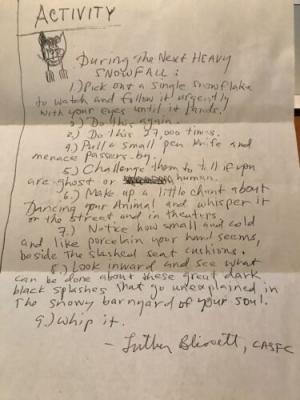 ACTIVITY
During The Next HEAVY
SNOWFALL:
1.) Pick out a single snowflake
to watch and follow it urgently
with your eyes until it lands.
2.) Do this again.
3.) Do this 27,000 times.
4.) Pull a small pen knife and
menace passers-by.
5.) Challenge them to tell if you
are ghost or human.
6.) Make up a little chant about
Dancing your Animal and whisper it
on the street and in theaters.
7.) Notice how small and cold
and like porcelain your hand seems,
beside the slashed seat cushions.
8.) Look inward and see what
can be done about these great dark
black splashes that go unexplained in
the snowy barnyard of your soul.
9.) Whip it.
- Luther Blissett, CASFC